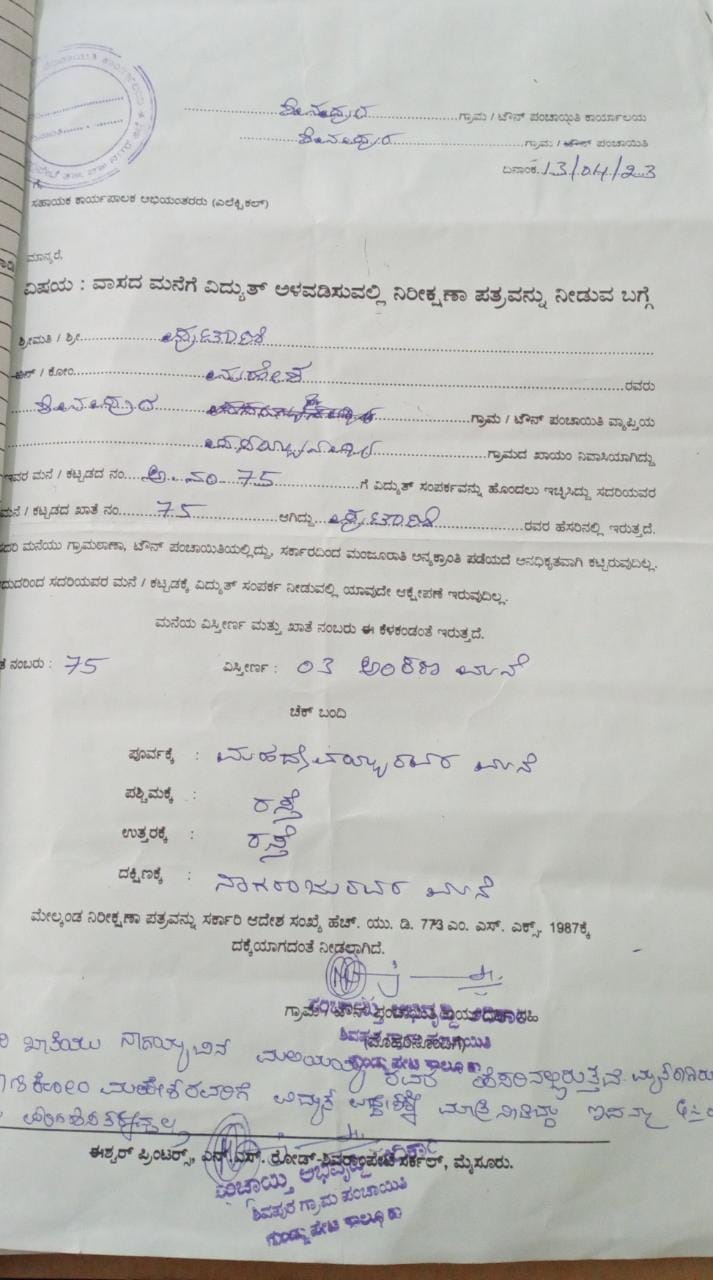 ಶಿವಪುರ ಗ್ರಾಮ / ಟೌನ್ ಪಂಚಾಯಿತಿ ಕಾರ್ಯಾಲಯ
ಶಿವಪುರ ಗ್ರಾಮ / ಟೌನ್ ಪಂಚಾಯಿತಿ
ದಿನಾಂಕ 13/04/23
ಗೆ,
ಸಹಾಯಕ ಕಾರ್ಯಪಾಲಕ ಅಭಿಯಂತರರು (ಎಲೆಕ್ಟ್ರಿಕಲ್)
ಮಾನ್ಯರೆ,
ವಿಷಯ : ವಾಸದ ಮನೆಗೆ ವಿದ್ಯುತ್ ಅಳವಡಿಸುವಲ್ಲಿ ನಿರೀಕ್ಷಣಾ ಪತ್ರವನ್ನು ನೀಡುವ ಬಗ್ಗೆ
ಶ್ರೀಮತಿ / ಶ್ರೀ
/ ಕೋಂ ಮಹೇಶ ರವರು
ಶಿವಪುರ ಗ್ರಾಮ / ಟೌನ್ ಪಂಚಾಯಿತಿ ವ್ಯಾಪ್ತಿಯ
ಗ್ರಾಮದ ಖಾಯಂ ನಿವಾಸಿಯಾಗಿದ್ದು
ಇವರ ಮನೆ / ಕಟ್ಟಡದ ನಂ. ಅ. ನಂ 75 ಗೆ ವಿದ್ಯುತ್ ಸಂಪರ್ಕವನ್ನು ಹೊಂದಲು ಇಚ್ಛಿಸಿದ್ದು ಸದರಿಯವರ
ಮನೆ / ಕಟ್ಟಡದ ಖಾತೆ ನಂ. 75 ಆಗಿದ್ದು ರವರ ಹೆಸರಿನಲ್ಲಿ ಇರುತ್ತದೆ.
ಸದರಿ ಮನೆಯು ಗ್ರಾಮಠಾಣಾ, ಟೌನ್ ಪಂಚಾಯಿತಿಯಲ್ಲಿದ್ದು, ಸರ್ಕಾರದಿಂದ ಮಂಜೂರಾತಿ ಅನ್ಯಕ್ರಾಂತಿ ಪಡೆಯದೆ ಅನಧಿಕೃತವಾಗಿ ಕಟ್ಟಿರುವುದಿಲ್ಲ.
ದುದರಿಂದ ಸದರಿಯವರ ಮನೆ / ಕಟ್ಟಡಕ್ಕೆ ವಿದ್ಯುತ್ ಸಂಪರ್ಕ ನೀಡುವಲ್ಲಿ ಯಾವುದೇ ಆಕ್ಷೇಪಣೆ ಇರುವುದಿಲ್ಲ.
ಮನೆಯ ವಿಸ್ತೀರ್ಣ ಮತ್ತು ಖಾತೆ ನಂಬರು ಈ ಕೆಳಕಂಡಂತೆ ಇರುತ್ತದೆ.
ತೆ ನಂಬರು : 75 ವಿಸ್ತೀರ್ಣ : 03 ಅಂಕಣ ಮನೆ
ಚೆಕ್ ಬಂದಿ
ಪೂರ್ವಕ್ಕೆ : ಮಹದೇವಯ್ಯರವರ ಮನೆ
ಪಶ್ಚಿಮಕ್ಕೆ : ರಸ್ತೆ
ಉತ್ತರಕ್ಕೆ : ರಸ್ತೆ
ದಕ್ಷಿಣಕ್ಕೆ : ನಾಗರಾಜುರವರ ಮನೆ
ಮೇಲ್ಕಂಡ ನಿರೀಕ್ಷಣಾ ಪತ್ರವನ್ನು ಸರ್ಕಾರಿ ಆದೇಶ ಸಂಖ್ಯೆ ಹೆಚ್. ಯು. ಡಿ. 773 ಎಂ. ಎಸ್. ಎಕ್ಸ್. 1987ಕ್ಕೆ
ದಕ್ಕೆಯಾಗದಂತೆ ನೀಡಲಾಗಿದೆ.
ಗ್ರಾಮ / ಟೌನ್ ಪಂಚಾಯಿತಿ
(ಮೊಹರಿನೊಂದಿಗೆ)
ಪಂಚಾಯ್ತಿ ಅಭಿವೃದ್ಧಿ ಅಧಿಕಾರಿ
ಶಿವಪುರ ಗ್ರಾಮ ಪಂಚಾಯಿತಿ
ಗುಂಡ್ಲುಪೇಟೆ ತಾಲ್ಲೂಕು
ಖಾತೆಯು ರವರ ಹೆಸರಿನಲ್ಲಿರುತ್ತದೆ
ಕೋಂ ಮಹೇಶರವರಿಗೆ ವಿದ್ಯುತ್ ಮಾತ್ರ ನೀಡಿದ್ದು
ಈಶ್ವರ್ ಪ್ರಿಂಟರ್ಸ್, ಎನ್.ಎಸ್. ರೋಡ್-ಶಿವರಾಂಪೇಟೆ ಸರ್ಕಲ್, ಮೈಸೂರು.
ಪಂಚಾಯ್ತಿ ಅಭಿವೃದ್ಧಿ ಅಧಿಕಾರಿ
ಶಿವಪುರ ಗ್ರಾಮ ಪಂಚಾಯಿತಿ
ಗುಂಡ್ಲುಪೇಟೆ ತಾಲ್ಲೂಕು